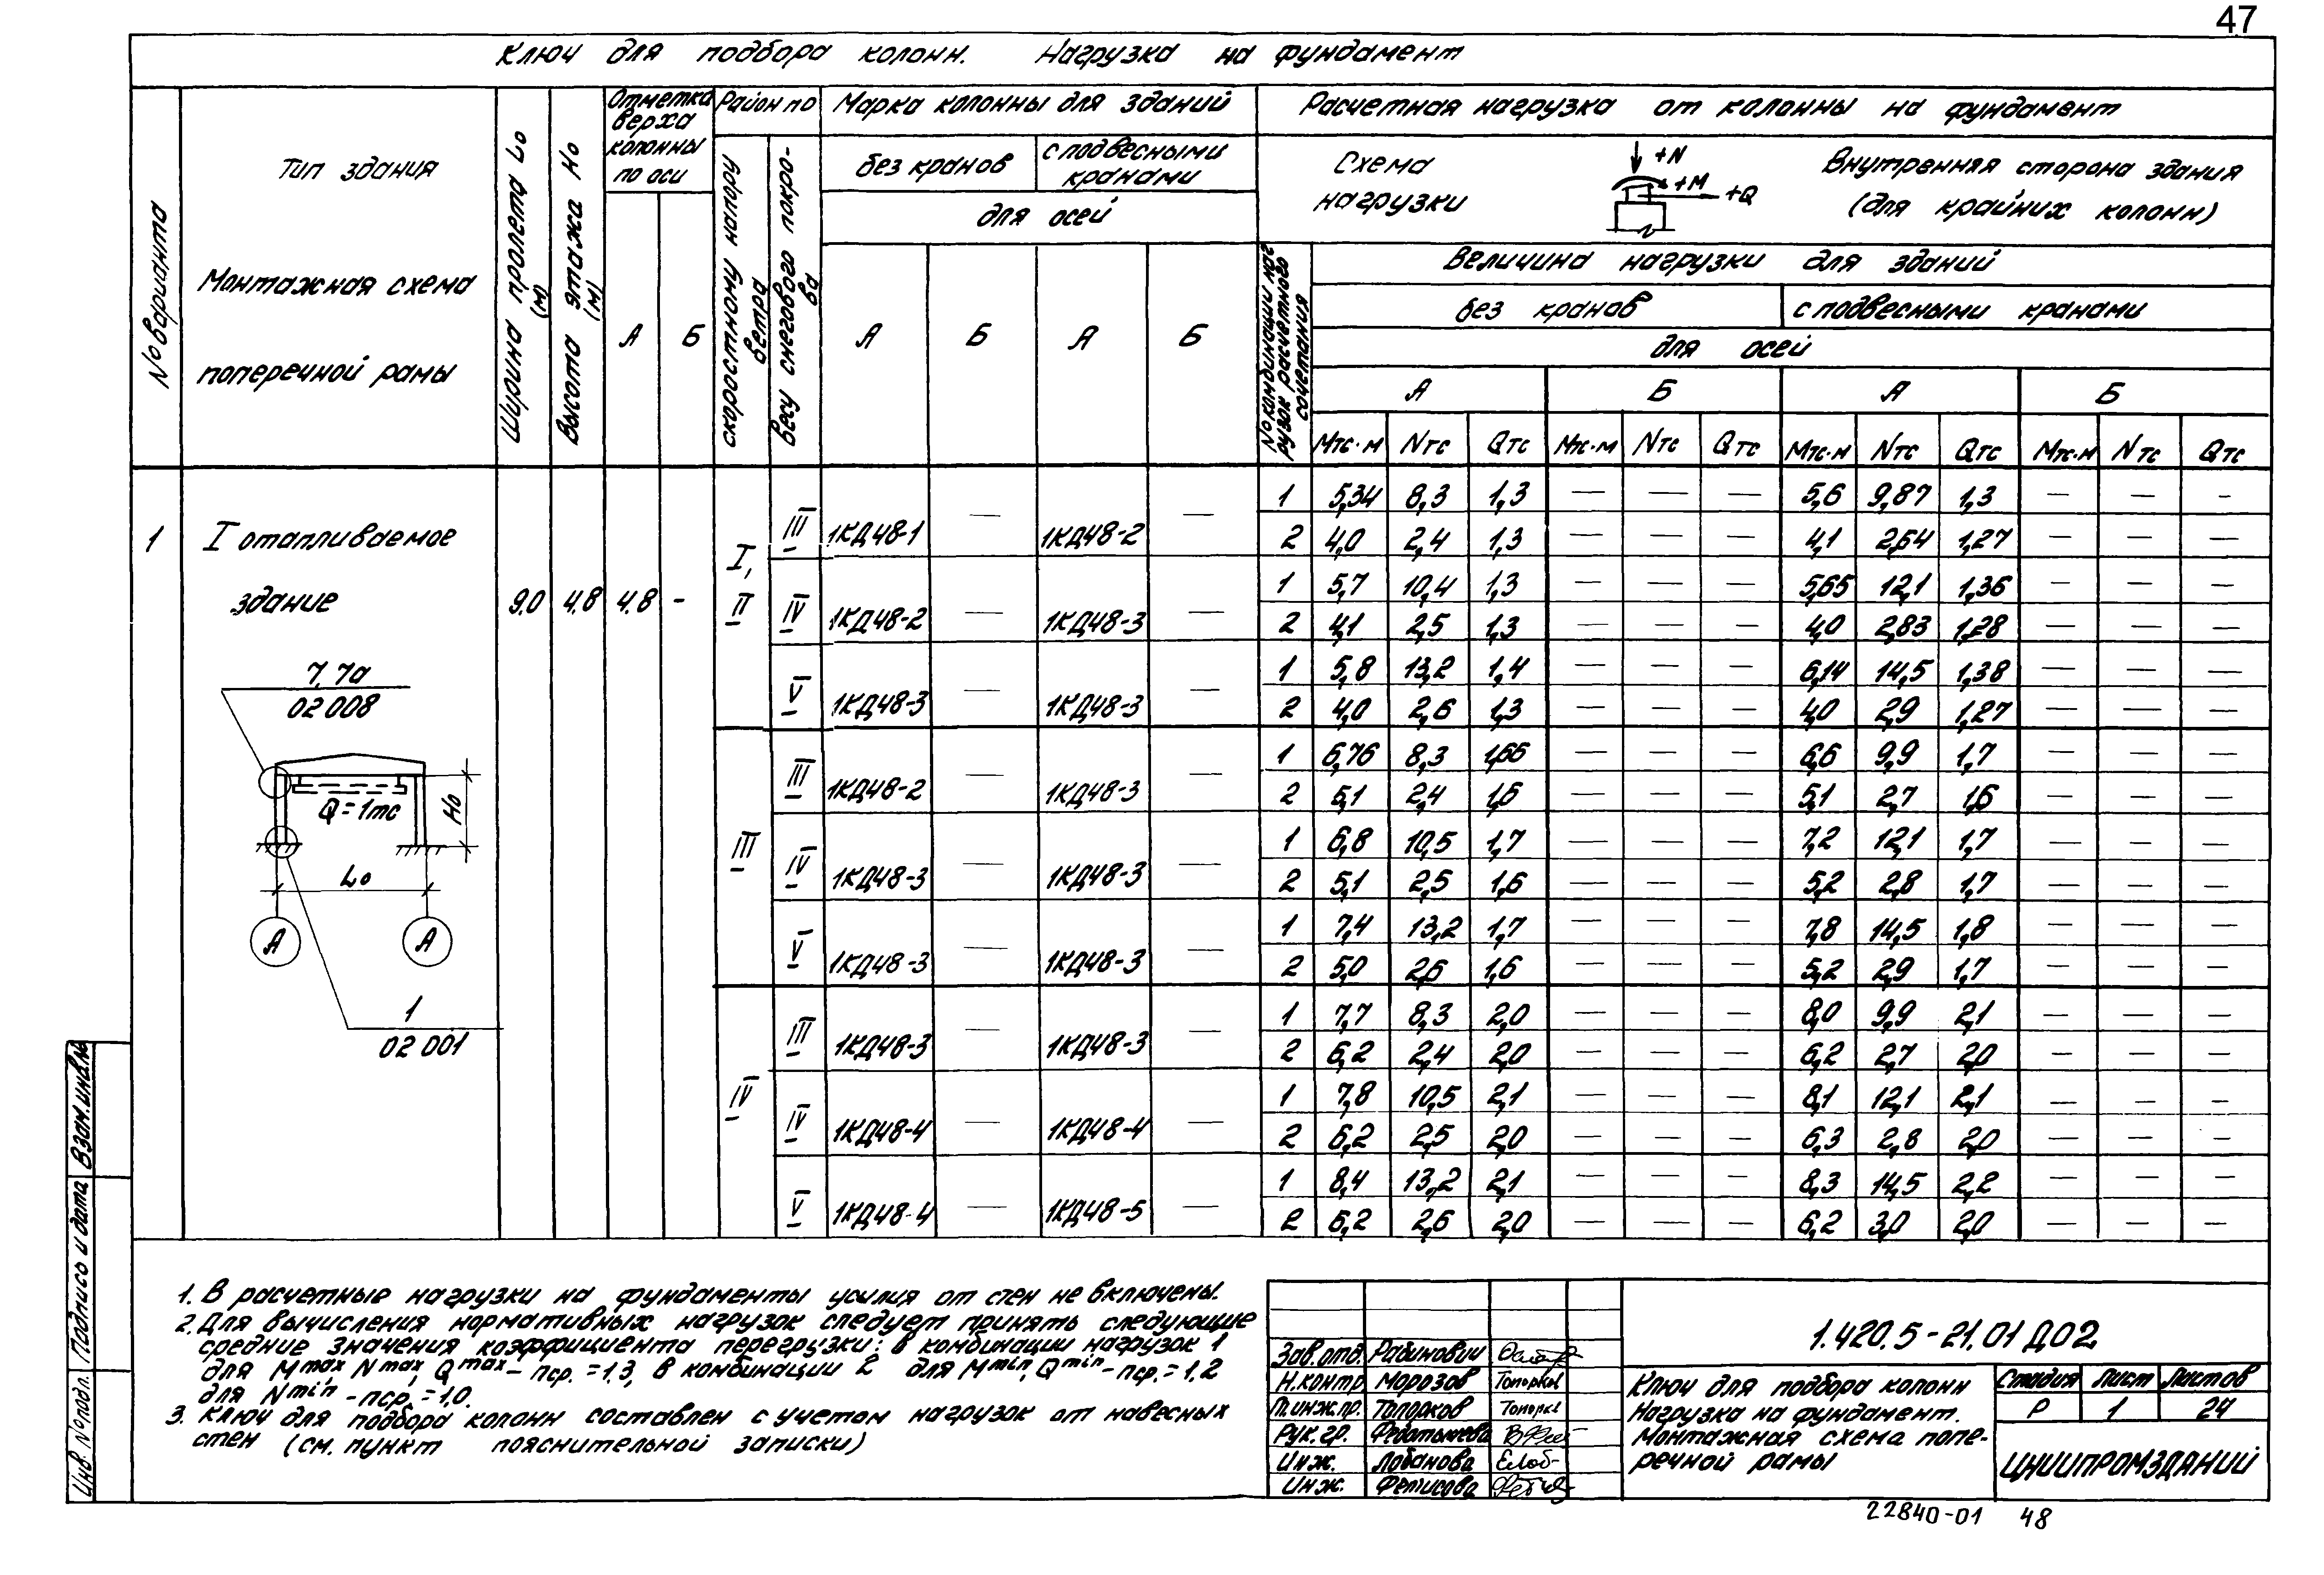 47
Ключ для подбора колонн. Нагрузка на фундамент
№ варианта
Тип здания
Монтажная схема
поперечной рамы
Ширина пролета Lo (м)
Высота этажа Ho (м)
Отметка
верха
колонны
по оси
А Б
Район по
скоростному напору ветра
весу снегового покрова
Марка колонны для зданий
без кранов
с подвесными
кранами
для осей
А Б А Б
Расчетная нагрузка от колонны на фундамент
Схема
нагрузки
+N
+M
+Q
Внутренняя сторона здания
(для крайних колонн)
№ комбинации нагрузок расчетного сочетания
Величина нагрузки для зданий
без кранов с подвесными кранами
для осей
А Б А Б
Мтс·м Nтс Qтс Мтс·м Nтс Qтс Мтс·м Nтс Qтс Мтс·м Nтс Qтс
1 I отапливаемое
здание 9,0 4,8 4,8 -
7, 7а
02 008
Q=1тс
Ho
Lo
А А
1
02 001
I, II
III 1КД48-1 — 1КД48-2 —
1 5,34 8,3 1,3 — — — 5,6 9,87 1,3 — — —
2 4,0 2,4 1,3 — — — 4,1 2,64 1,27 — — —
IV 1КД48-2 — 1КД48-3 —
1 5,7 10,4 1,3 — — — 5,65 12,1 1,36 — — —
2 4,1 2,5 1,3 — — — 4,0 2,83 1,28 — — —
V 1КД48-3 — 1КД48-3 —
1 5,8 13,2 1,4 — — — 6,14 14,5 1,38 — — —
2 4,0 2,6 1,3 — — — 4,0 2,9 1,27 — — —
III
III 1КД48-2 — 1КД48-3 —
1 6,76 8,3 1,66 — — — 6,6 9,9 1,7 — — —
2 5,1 2,4 1,6 — — — 5,1 2,7 1,6 — — —
IV 1КД48-3 — 1КД48-3 —
1 6,8 10,5 1,7 — — — 7,2 12,1 1,7 — — —
2 5,1 2,5 1,6 — — — 5,2 2,8 1,7 — — —
V 1КД48-3 — 1КД48-3 —
1 7,4 13,2 1,7 — — — 7,8 14,5 1,8 — — —
2 5,0 2,6 1,6 — — — 5,2 2,9 1,7 — — —
IV
III 1КД48-3 — 1КД48-3 —
1 7,7 8,3 2,0 — — — 8,0 9,9 2,1 — — —
2 6,2 2,4 2,0 — — — 6,2 2,7 2,0 — — —
IV 1КД48-4 — 1КД48-4 —
1 7,8 10,5 2,1 — — — 8,1 12,1 2,1 — — —
2 6,2 2,5 2,0 — — — 6,3 2,8 2,0 — — —
V 1КД48-4 — 1КД48-5 —
1 8,4 13,2 2,1 — — — 8,3 14,5 2,2 — — —
2 6,2 2,6 2,0 — — — 6,2 3,0 2,0 — — —
1. В расчетные нагрузки на фундаменты усилия от стен не включены.
2. Для вычисления нормативных нагрузок следует принять следующие
средние значения коэффициента перегрузки: в комбинации нагрузок 1
для Mmax, Nmax, Qmax – nср. = 1.3, в комбинации 2 для Mmin, Qmin – nср. = 1.2
для Nmin – nср. = 1.0.
3. Ключ для подбора колонн составлен с учетом нагрузок от навесных
стен (см. пункт пояснительной записки)
Инв. № подл. Подпись и дата Взам. инв. №
Зав.отд. Рабинович
Н.контр. Морозов Топорков
Гл.инж.пр. Топорков Топорк
Рук.гр.
Инж. Лобанова Елоб-
Инж. Фетисова
1.420.5-21.01 Д02
Ключ для подбора колонн
Нагрузка на фундамент.
Монтажная схема попе-
речной рамы
Стадия Лист Листов
Р 1 24
ЦНИИПРОМЗДАНИЙ
22840-01 48